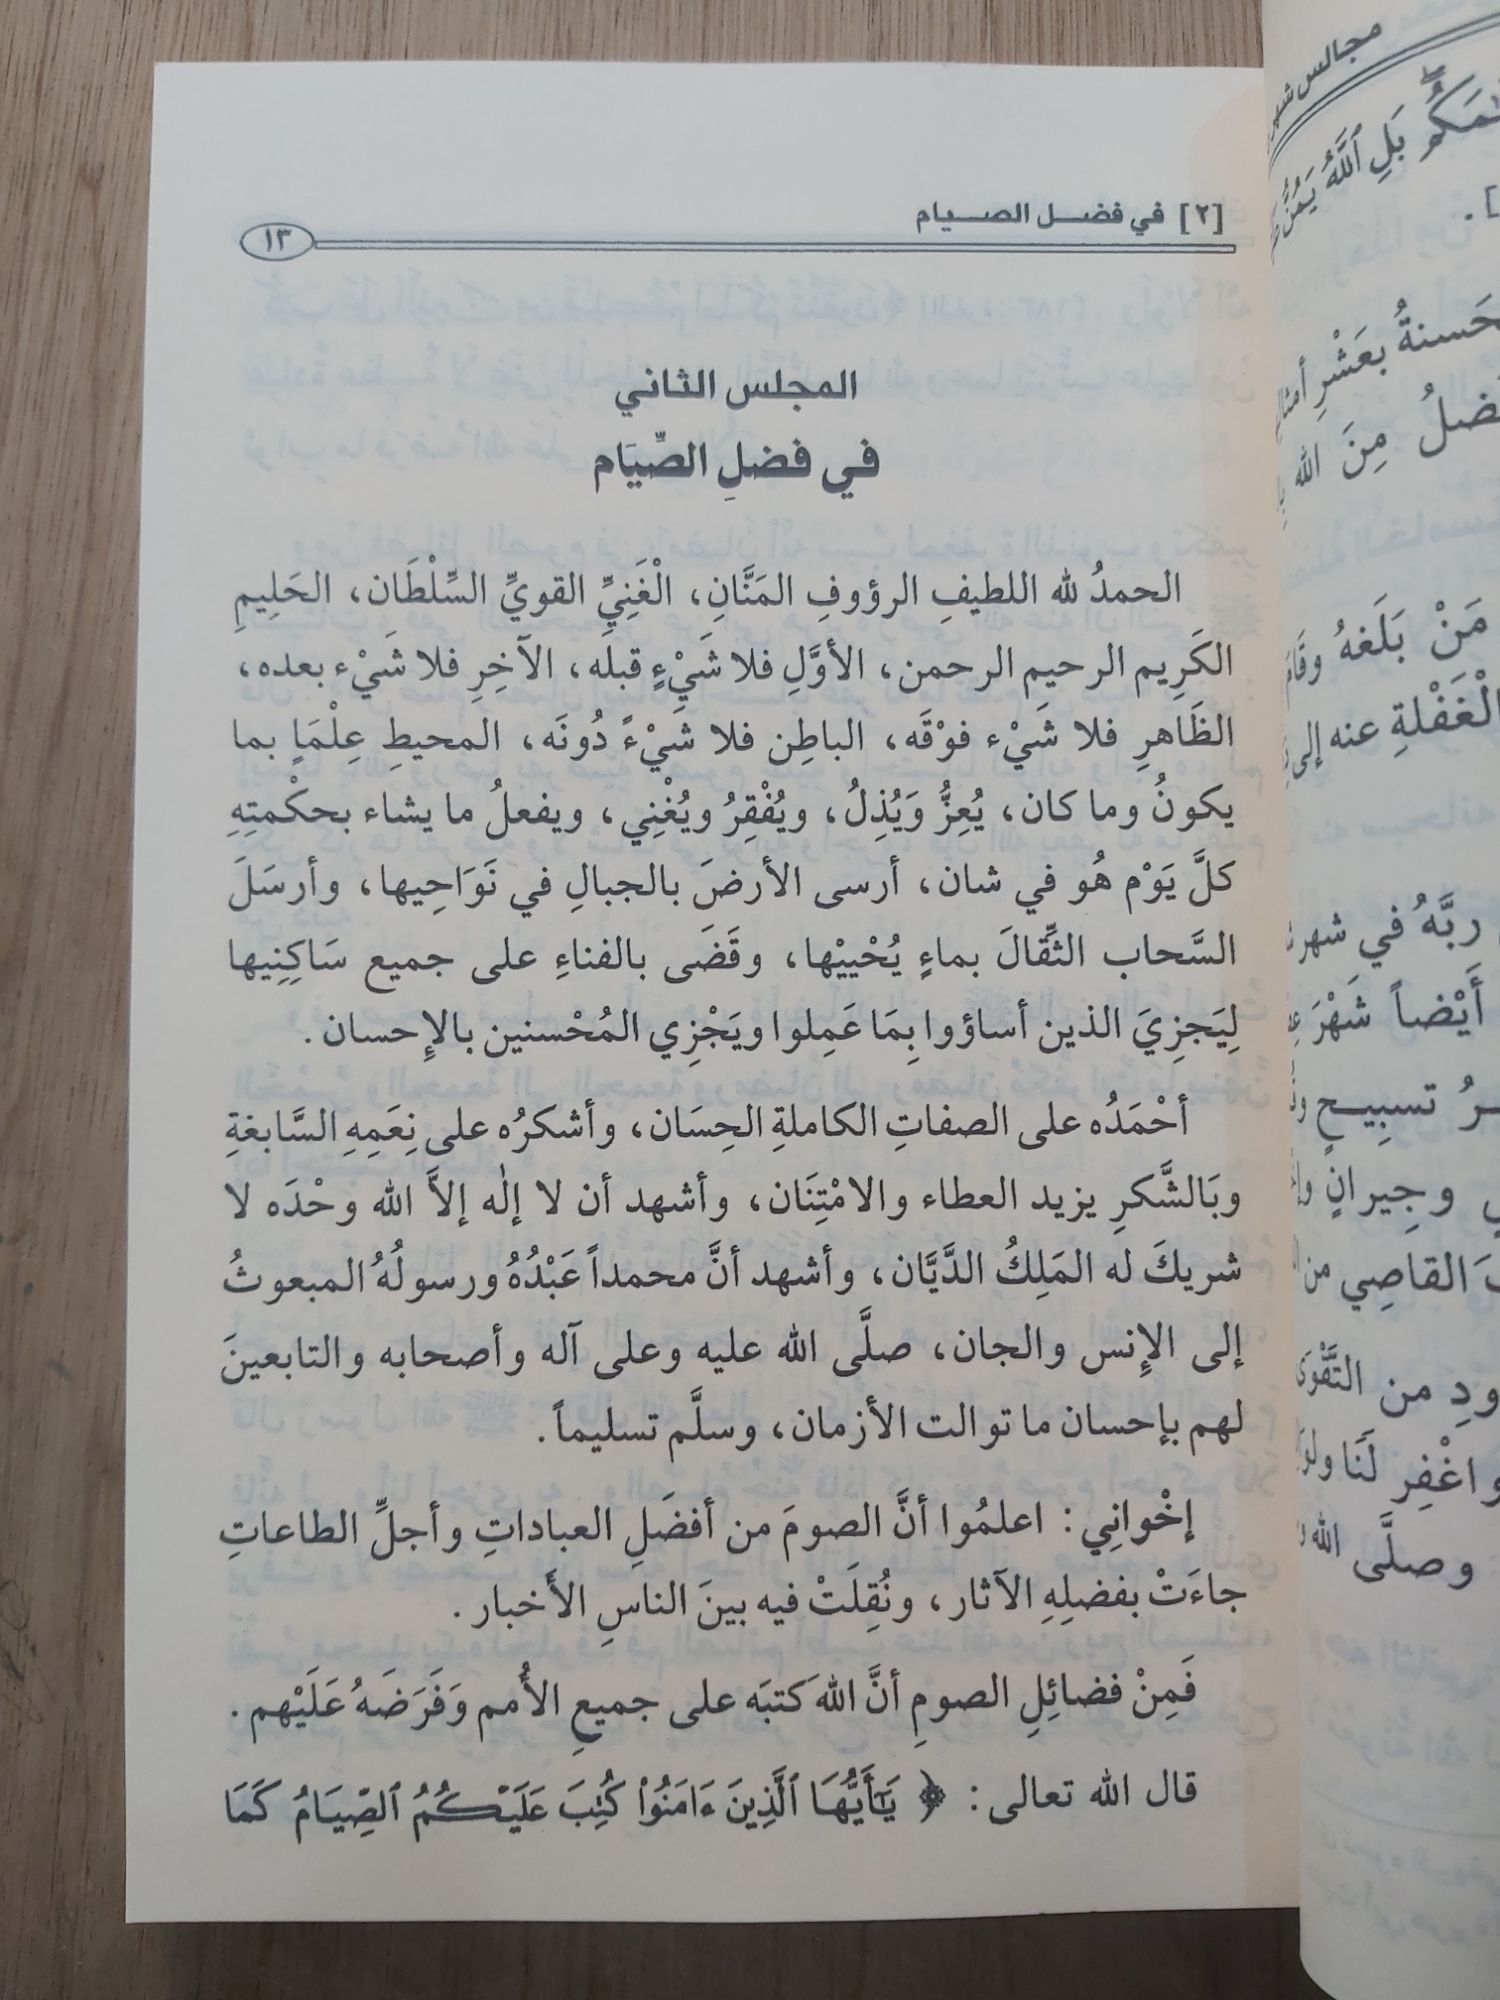 [٢] في فضـل الصـيام
١٣
المجلس الثاني
في فضلِ الصِّيَام
الحمدُ لله اللطيفِ الرؤوفِ المَنَّانِ، الْغَنِيِّ القويِّ السِّلْطَان، الحَلِيمِ
الكَرِيم الرحيم الرحمن، الأوَّلِ فلا شَيْءٍ قبلَه، الآخِرِ فلا شَيْء بعده،
الظَاهرِ فلا شَيْء فوْقَه، الباطِن فلا شَيْءً دُونَه، المحيطِ عِلْمَاٍ بما
يكونُ وما كان، يُعِزُّ وَيُذِلُ، ويُفْقِرُ ويُغْنِي، ويفعلُ ما يشاء بحكْمتِهِ
كلَّ يَوْم هُو في شان، أرسى الأرضَ بالجبالِ في نَوَاحِيها، وأرسَلَ
السَّحاب الثِّقَالَ بماءٍ يُحْييْها، وقَضَى بالفناءِ على جميع سَاكِنِيها
لِيَجزِيَ الذين أساؤوا بِمَا عَمِلوا ويَجْزِي المُحْسنين بالإِحسان.
أحْمَدُه على الصفاتِ الكاملةِ الحِسَان، وأشكرُه على نِعَمِهِ السَّابغةِ
وبَالشَّكرِ يزيد العطاء والامْتِنَان، وأشهد أن لا إلٰه إلاَّ الله وحْدَه لا
شريكَ له المَلِكُ الدَّيَّان، وأشهد أنَّ محمداً عَبْدُهُ ورسولُهُ المبعوثُ
إلى الإِنس والجان، صلَّى الله عليه وعلى آله وأصحابه والتابعينَ
لهم بإحسان ما توالت الأزمان، وسلَّم تسليماً.
إخْوانِي: اعلمُوا أنَّ الصومَ من أفضَلِ العباداتِ وأجلِّ الطاعاتِ
جاءَتْ بفضلِهِ الآثار، ونُقِلَتْ فيه بينَ الناسِ الأَخبار.
فَمِنْ فضائِلِ الصومِ أنَّ الله كتبَه على جميعِ الأُمم وَفَرَضَهُ عَلَيْهم.
قال الله تعالى: ﴿ يَٰٓأَيُّهَا ٱلَّذِينَ ءَامَنُوا۟ كُتِبَ عَلَيْكُمُ ٱلصِّيَامُ كَمَا
مجالس شهر
بَلِ ٱللَّهُ يَمُنُّ
بعَشْرِ
مِنَ الله
مَنْ بَلَغهُ
الْغَفْلةِ عنه إلى
ربَّهُ في شهر
أَيْضاً شَهْرَ
تسبِيـحٍ
وجِيرانٍ
القاصِي من
من التَّقْوَى
واغْفِر لَنَا
وصلَّى الله